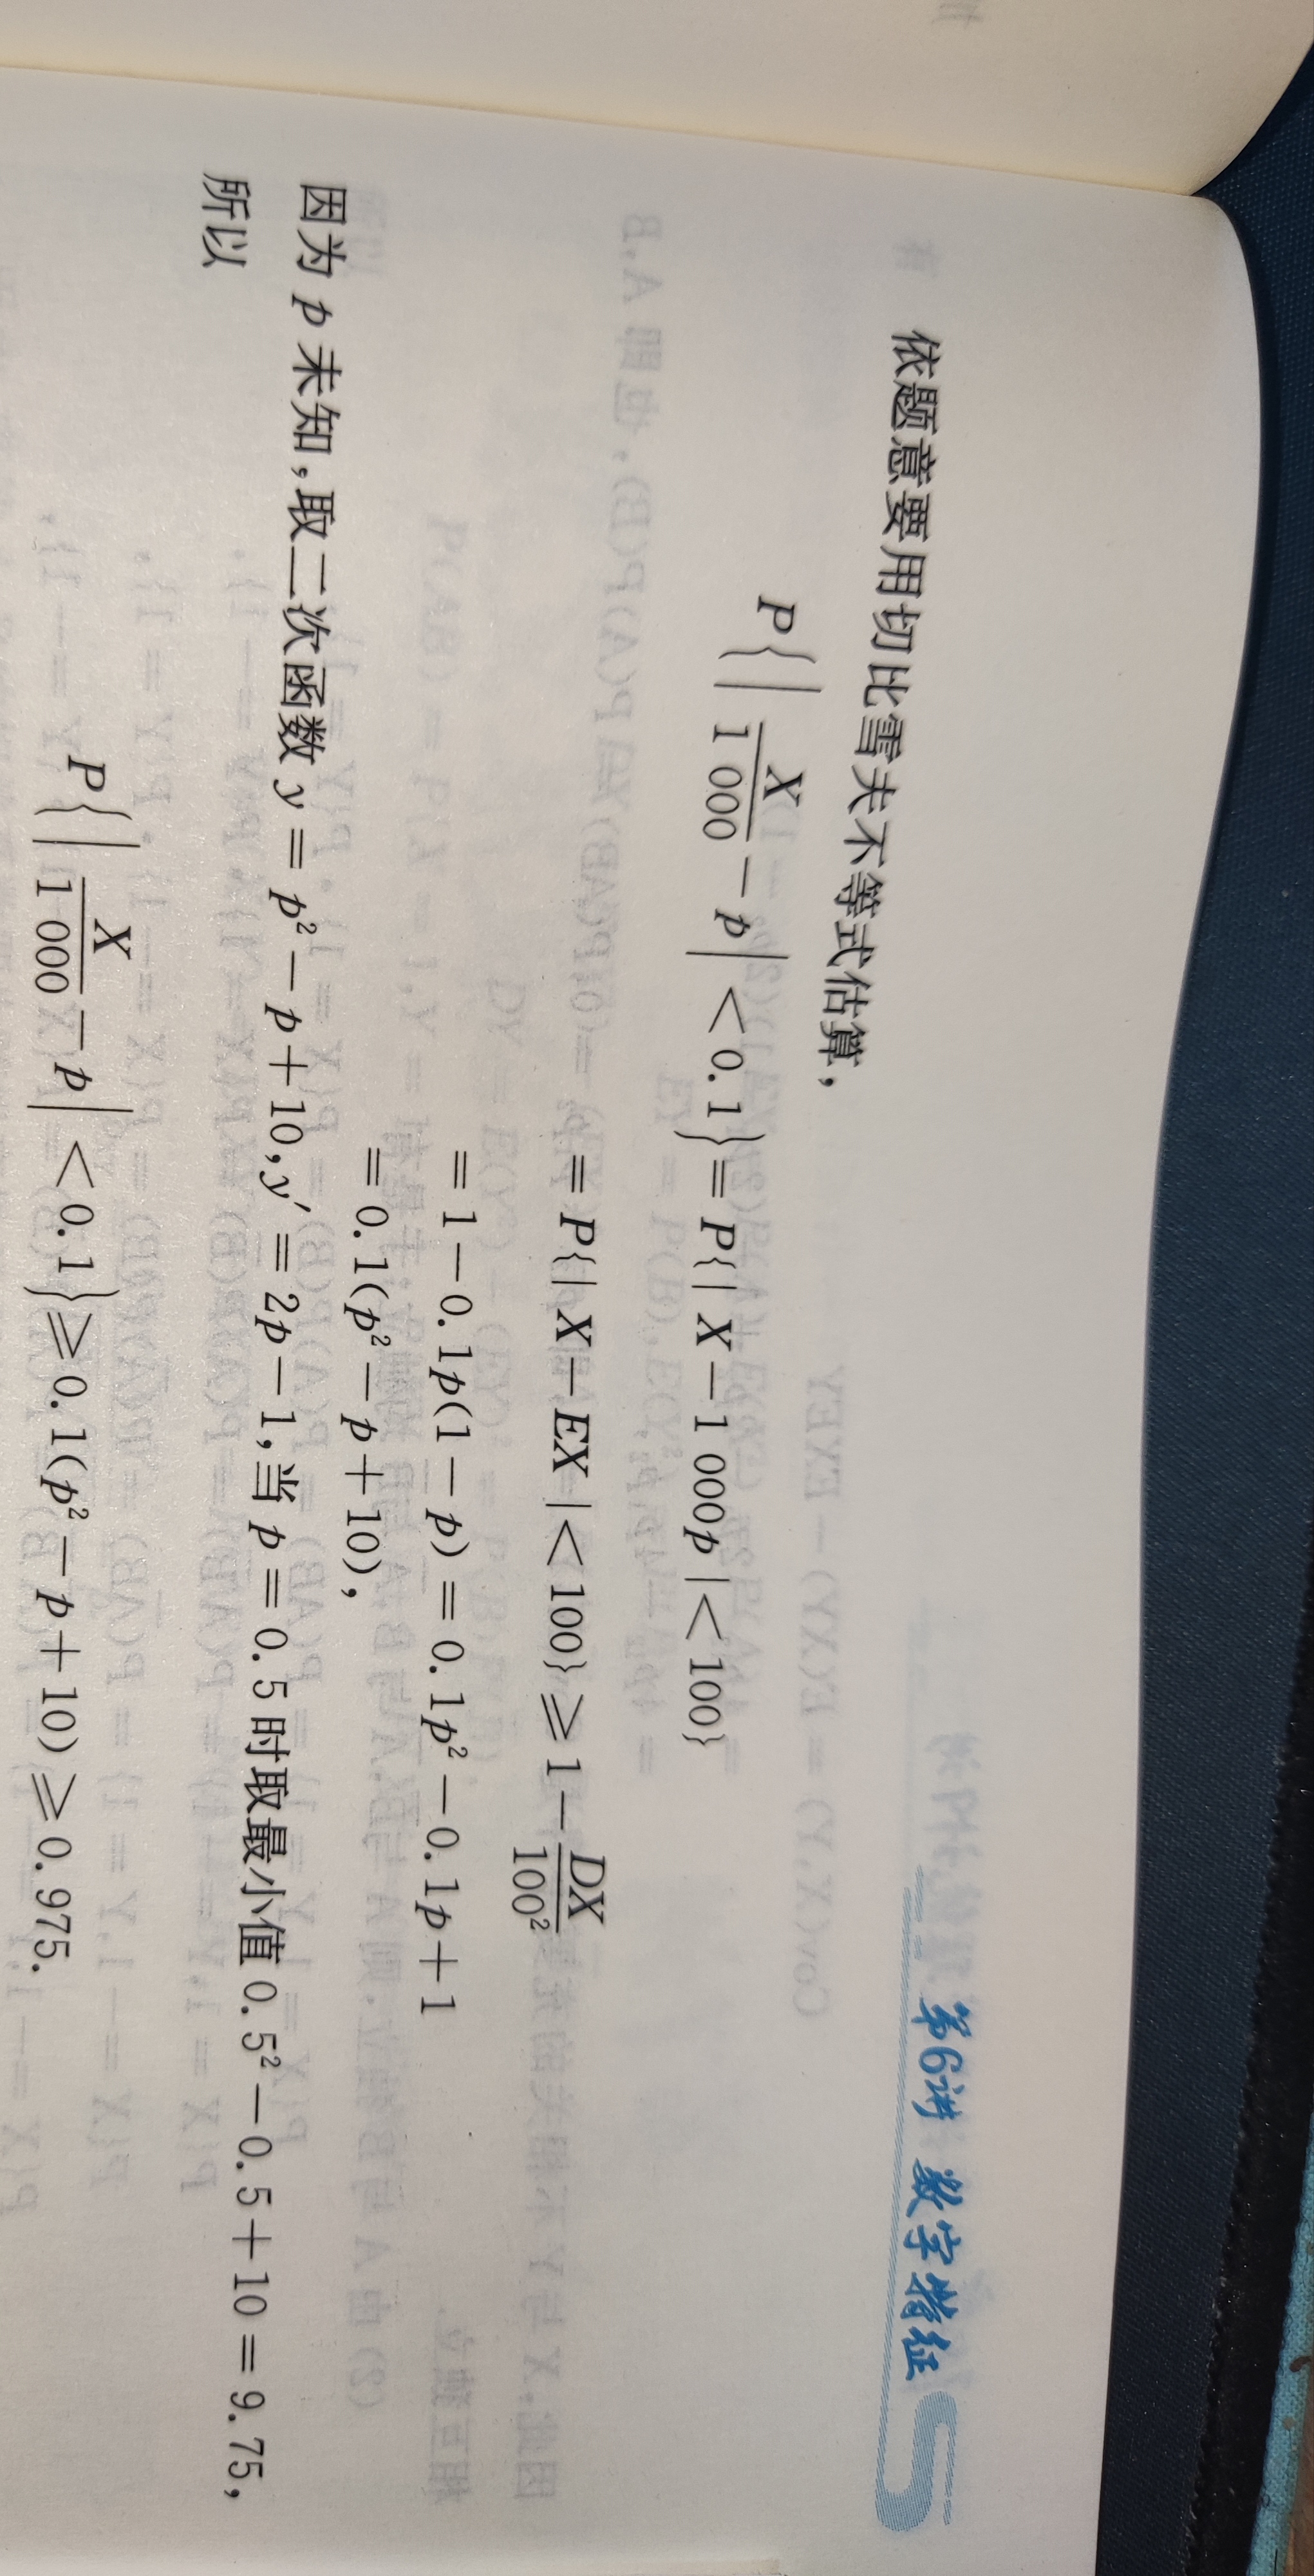 第6讲 数字特征
依题意要用切比雪夫不等式估算,
P{|X/1 000 − p| < 0.1} = P{| X − 1 000p | < 100}
= P{| X − EX | < 100} ⩾ 1 − DX/100²
= 1 − 0.1p(1 − p) = 0.1p² − 0.1p + 1
= 0.1(p² − p + 10),
因为 p 未知,取二次函数 y = p² − p + 10,y′ = 2p − 1,当 p = 0.5 时取最小值 0.5² − 0.5 + 10 = 9.75,
所以
P{|X/1 000 − p| < 0.1} ⩾ 0.1(p² − p + 10) ⩾ 0.975.